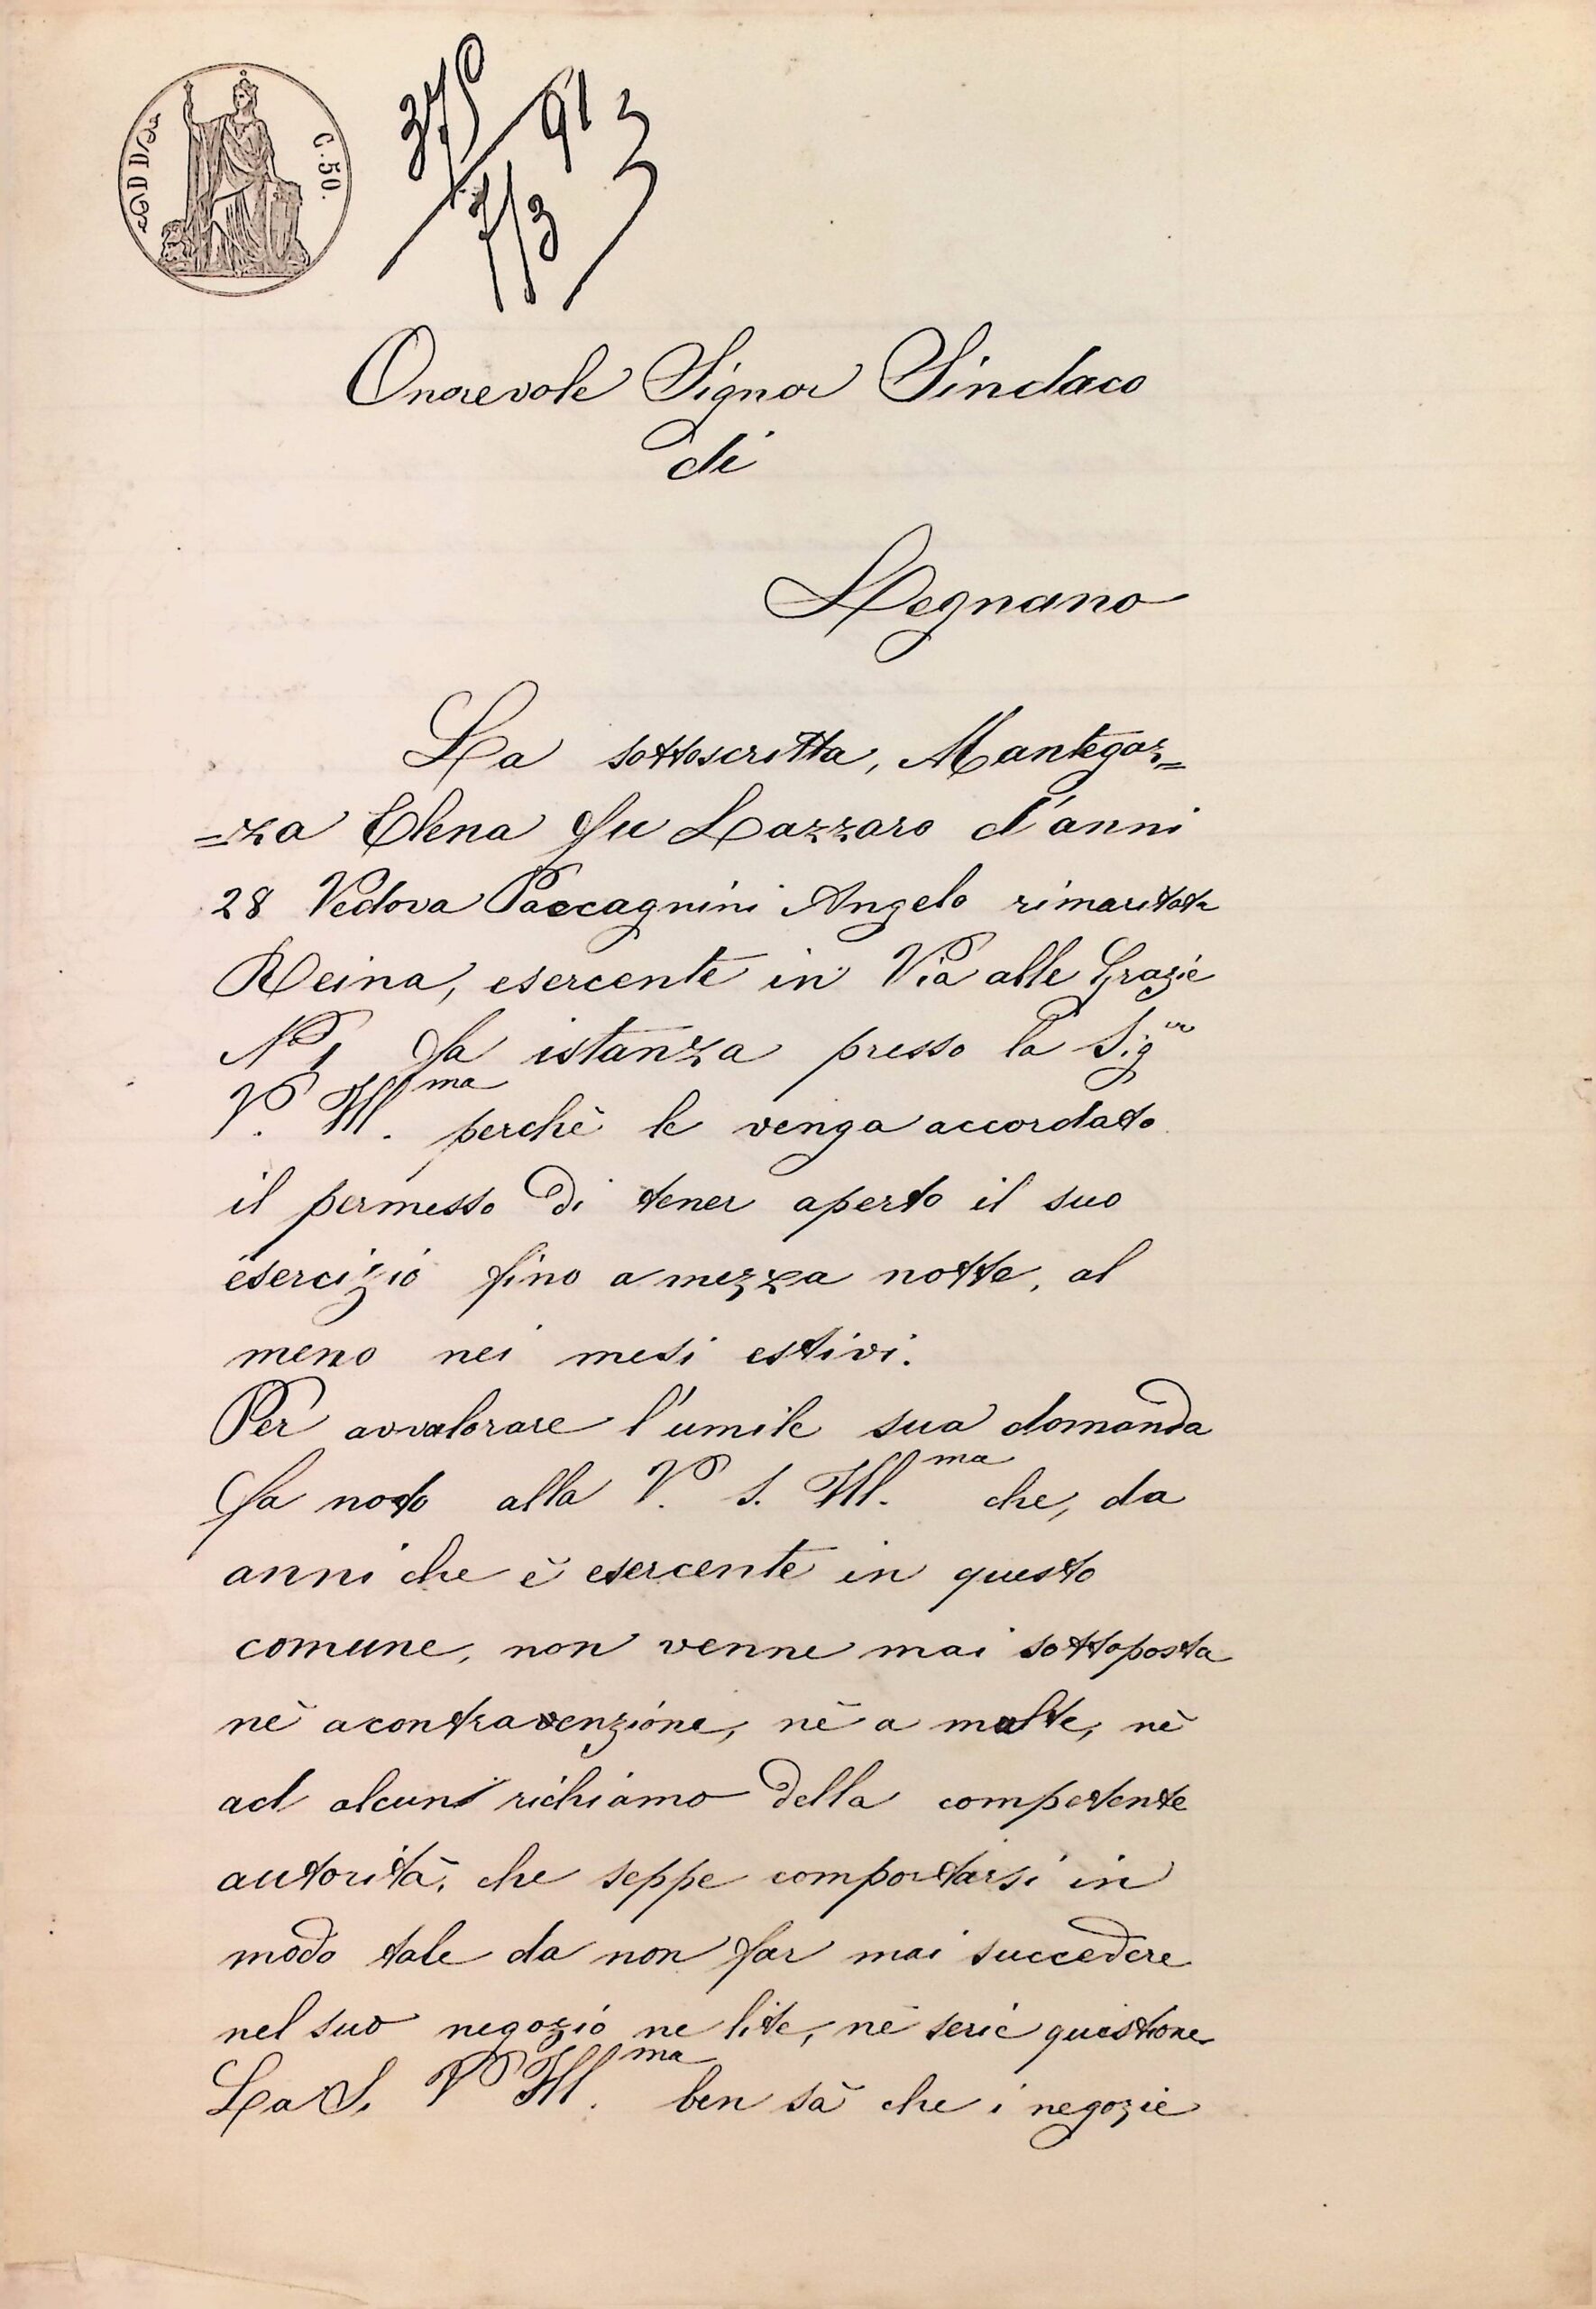 C. 50.
375
91 3
7/3
Onorevole Signor Sindaco
di
Legnano
La sottoscritta, Mantegaz=
=za Elena fu Lazzaro d'anni
28 Vedova Paccagnini Angelo rimaritata
Reina, esercente in Via alle Grazie
No 1 fa istanza presso la Sigra
V. Ill.ma perchè le venga accordato
il permesso di tener aperto il suo
esercizio fino a mezza notte, al
meno nei mesi estivi.
Per avvalorare l'umile sua domanda
fa noto alla V. S. Ill.ma che, da
anni che è esercente in questo
comune, non venne mai sottoposta
nè a contravenzione, nè a multe, nè
ad alcun richiamo della competente
autorità, che seppe comportarsi in
modo tale da non far mai succedere
nel suo negozio ne lite, nè serie questione
La S. V Ill.ma ben sà che i negozie